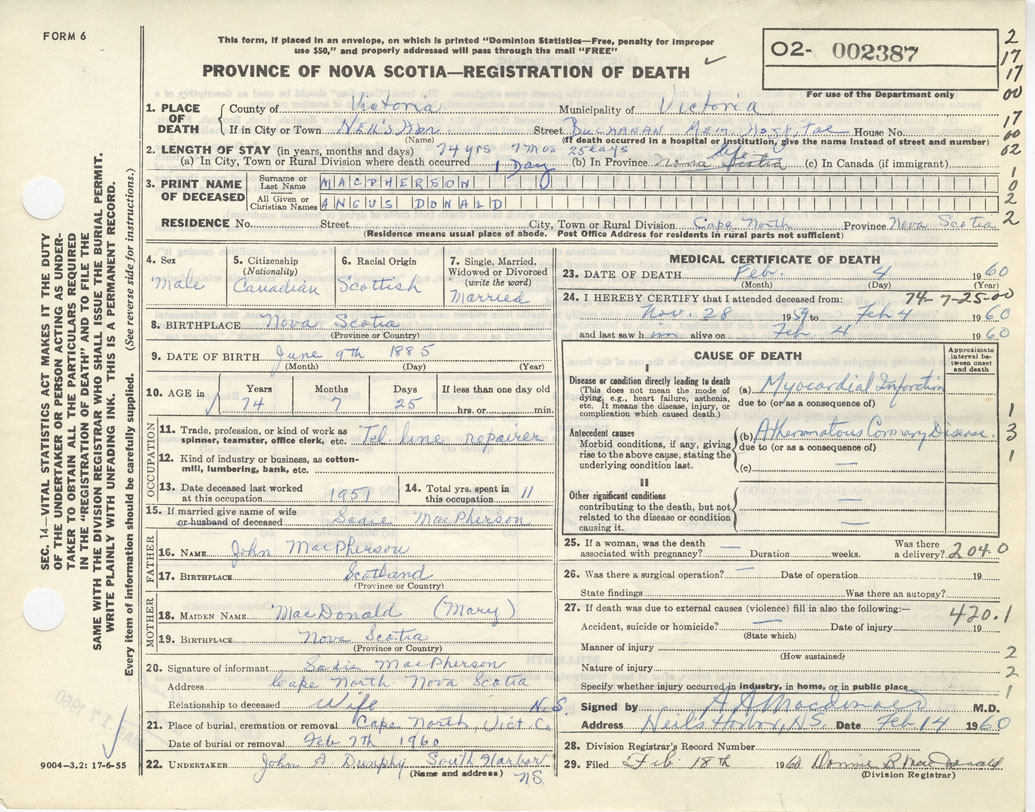 FORM 6
This form, if placed in an envelope, on which is printed "Dominion Statistics—Free, penalty for improper
use $50," and properly addressed will pass through the mail "FREE"
PROVINCE OF NOVA SCOTIA—REGISTRATION OF DEATH
02- 002387
For use of the Department only
2
17
17
00
17
60
02
1
0
2
2
1. PLACE OF DEATH
County of Victoria Municipality of Victoria
If in City or Town Neil's Hbr. Street Buchanan Mem. Hospital House No.
(Name) (If death occurred in a hospital or institution, give the name instead of street and number)
2. LENGTH OF STAY (in years, months and days) 74 yrs 7 mos 25 days life
(a) In City, Town or Rural Division where death occurred 1 Day (b) In Province Nova Scotia (c) In Canada (if immigrant)
3. PRINT NAME OF DECEASED
Surname or Last Name MACPHERSON
All Given or Christian Names ANGUS DONALD
RESIDENCE No. Street City, Town or Rural Division Cape North Province Nova Scotia
(Residence means usual place of abode. Post Office Address for residents in rural parts not sufficient)
4. Sex
Male
5. Citizenship
(Nationality)
Canadian
6. Racial Origin
Scottish
7. Single, Married, Widowed or Divorced
(write the word)
Married
8. BIRTHPLACE Nova Scotia
(Province or Country)
9. DATE OF BIRTH June 9th 1885
(Month) (Day) (Year)
10. AGE in
Years Months Days If less than one day old
74 7 25 hrs. or min.
OCCUPATION
11. Trade, profession, or kind of work as
spinner, teamster, office clerk, etc. Tel. line repairer
12. Kind of industry or business, as cotton-
mill, lumbering, bank, etc.
13. Date deceased last worked
at this occupation 1951
14. Total yrs. spent in
this occupation 11
15. If married give name of wife
or husband of deceased Sadie MacPherson
FATHER
16. NAME John MacPherson
17. BIRTHPLACE Scotland
(Province or Country)
MOTHER
18. MAIDEN NAME MacDonald (Mary)
19. BIRTHPLACE Nova Scotia
(Province or Country)
20. Signature of informant Sadie MacPherson
Address Cape North Nova Scotia
Relationship to deceased Wife N.S.
21. Place of burial, cremation or removal Cape North, Vict. Co.
Date of burial or removal Feb 7th 1960
22. UNDERTAKER John A Dunphy South Harbor
(Name and address) N.S.
MEDICAL CERTIFICATE OF DEATH
23. DATE OF DEATH Feb. 4 1960
(Month) (Day) (Year)
24. I HEREBY CERTIFY that I attended deceased from: 74-7-25-00
Nov. 28 1959 to Feb 4 1960
and last saw him alive on Feb 4 1960
CAUSE OF DEATH
Approximate interval between onset and death
I
Disease or condition directly leading to death
(This does not mean the mode of
dying, e.g., heart failure, asthenia,
etc. It means the disease, injury, or
complication which caused death.)
(a) Myocardial Infarction
due to (or as a consequence of)
Antecedent causes
Morbid conditions, if any, giving
rise to the above cause, stating the
underlying condition last.
(b) Atheromatous Coronary Disease.
due to (or as a consequence of)
(c) —
1
3
1
II
Other significant conditions
contributing to the death, but not
related to the disease or condition
causing it.
—
—
25. If a woman, was the death
associated with pregnancy? — Duration weeks. Was there
a delivery? 2040
26. Was there a surgical operation? — Date of operation 19
State findings Was there an autopsy?
27. If death was due to external causes (violence) fill in also the following:—
420.1
Accident, suicide or homicide? — Date of injury 19
(State which)
Manner of injury 2
(How sustained)
Nature of injury 2
Specify whether injury occurred in industry, in home, or in public place 1
Signed by M.D.
Address Neils Harbor, N.S. Date Feb 14 1960
28. Division Registrar's Record Number
29. Filed Feb 18th 1960 Donnie B MacDonald
(Division Registrar)
SEC. 14—VITAL STATISTICS ACT MAKES IT THE DUTY
OF THE UNDERTAKER OR PERSON ACTING AS UNDER-
TAKER TO OBTAIN ALL THE PARTICULARS REQUIRED
IN THE "REGISTRATION OF DEATH" AND TO FILE THE
SAME WITH THE DIVISION REGISTRAR WHO SHALL ISSUE THE BURIAL PERMIT.
WRITE PLAINLY WITH UNFADING INK. THIS IS A PERMANENT RECORD.
Every item of information should be carefully supplied. (See reverse side for instructions.)
9004-3.2: 17-6-55